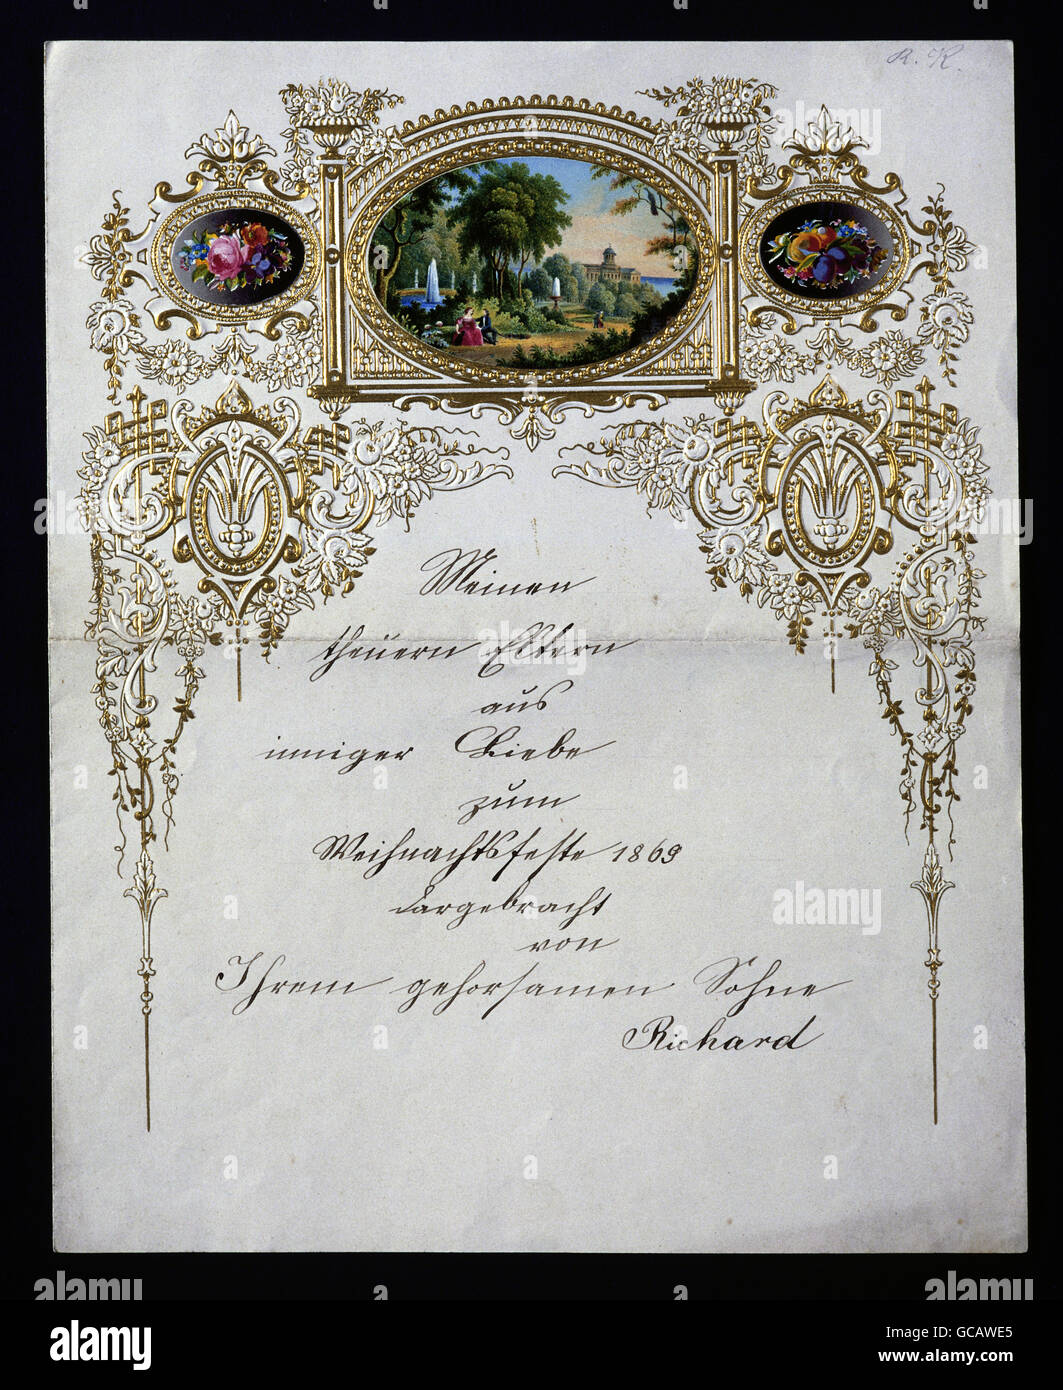 R. K.
Meinen
theüern Eltern
aus
inniger Liebe
zum
Weihnachtsfeste 1869
dargebracht
von
Ihrem gehorsamen Sohne
Richard
alamy
Image ID: GCAWE5
www.alamy.com